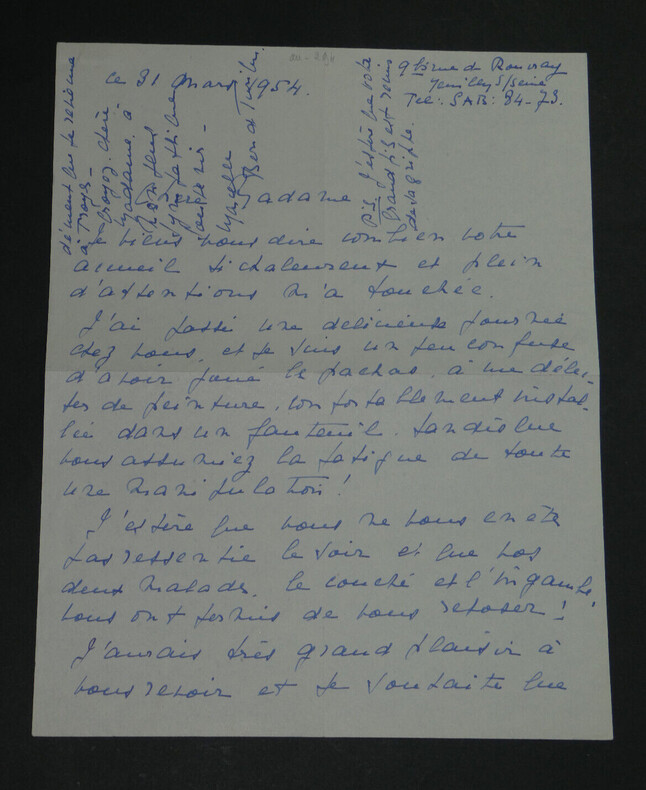 9 bis rue de Rouvray
Neuilly s/Seine
Tel: SAB: 84-73.
ce 31 Mars 1954.
Madame
Je viens vous dire combien votre
accueil si chaleureux et plein
d'attentions m'a touchée.
J'ai passé une délicieuse journée
chez vous, et je suis un peu confuse
d'avoir joué le pachas, à me délec-
ter de peinture, confortablement instal-
lée dans un fauteuil, tandis que
vous assumiez la fatigue de toute
une manipulation!
J'espère que vous ne vous en êtes
pas ressentie le soir et que vos
deux malades, le couché et l'ingambe,
vous ont permis de vous reposer!
J'aurais très grand plaisir à
vous revoir et je souhaite que
à Troyes -
Croyez, chère
Madame, à
mon plus
sympathique
souvenir -
P.S. J'espère que votre
grand fils est remis
de sa grippe.